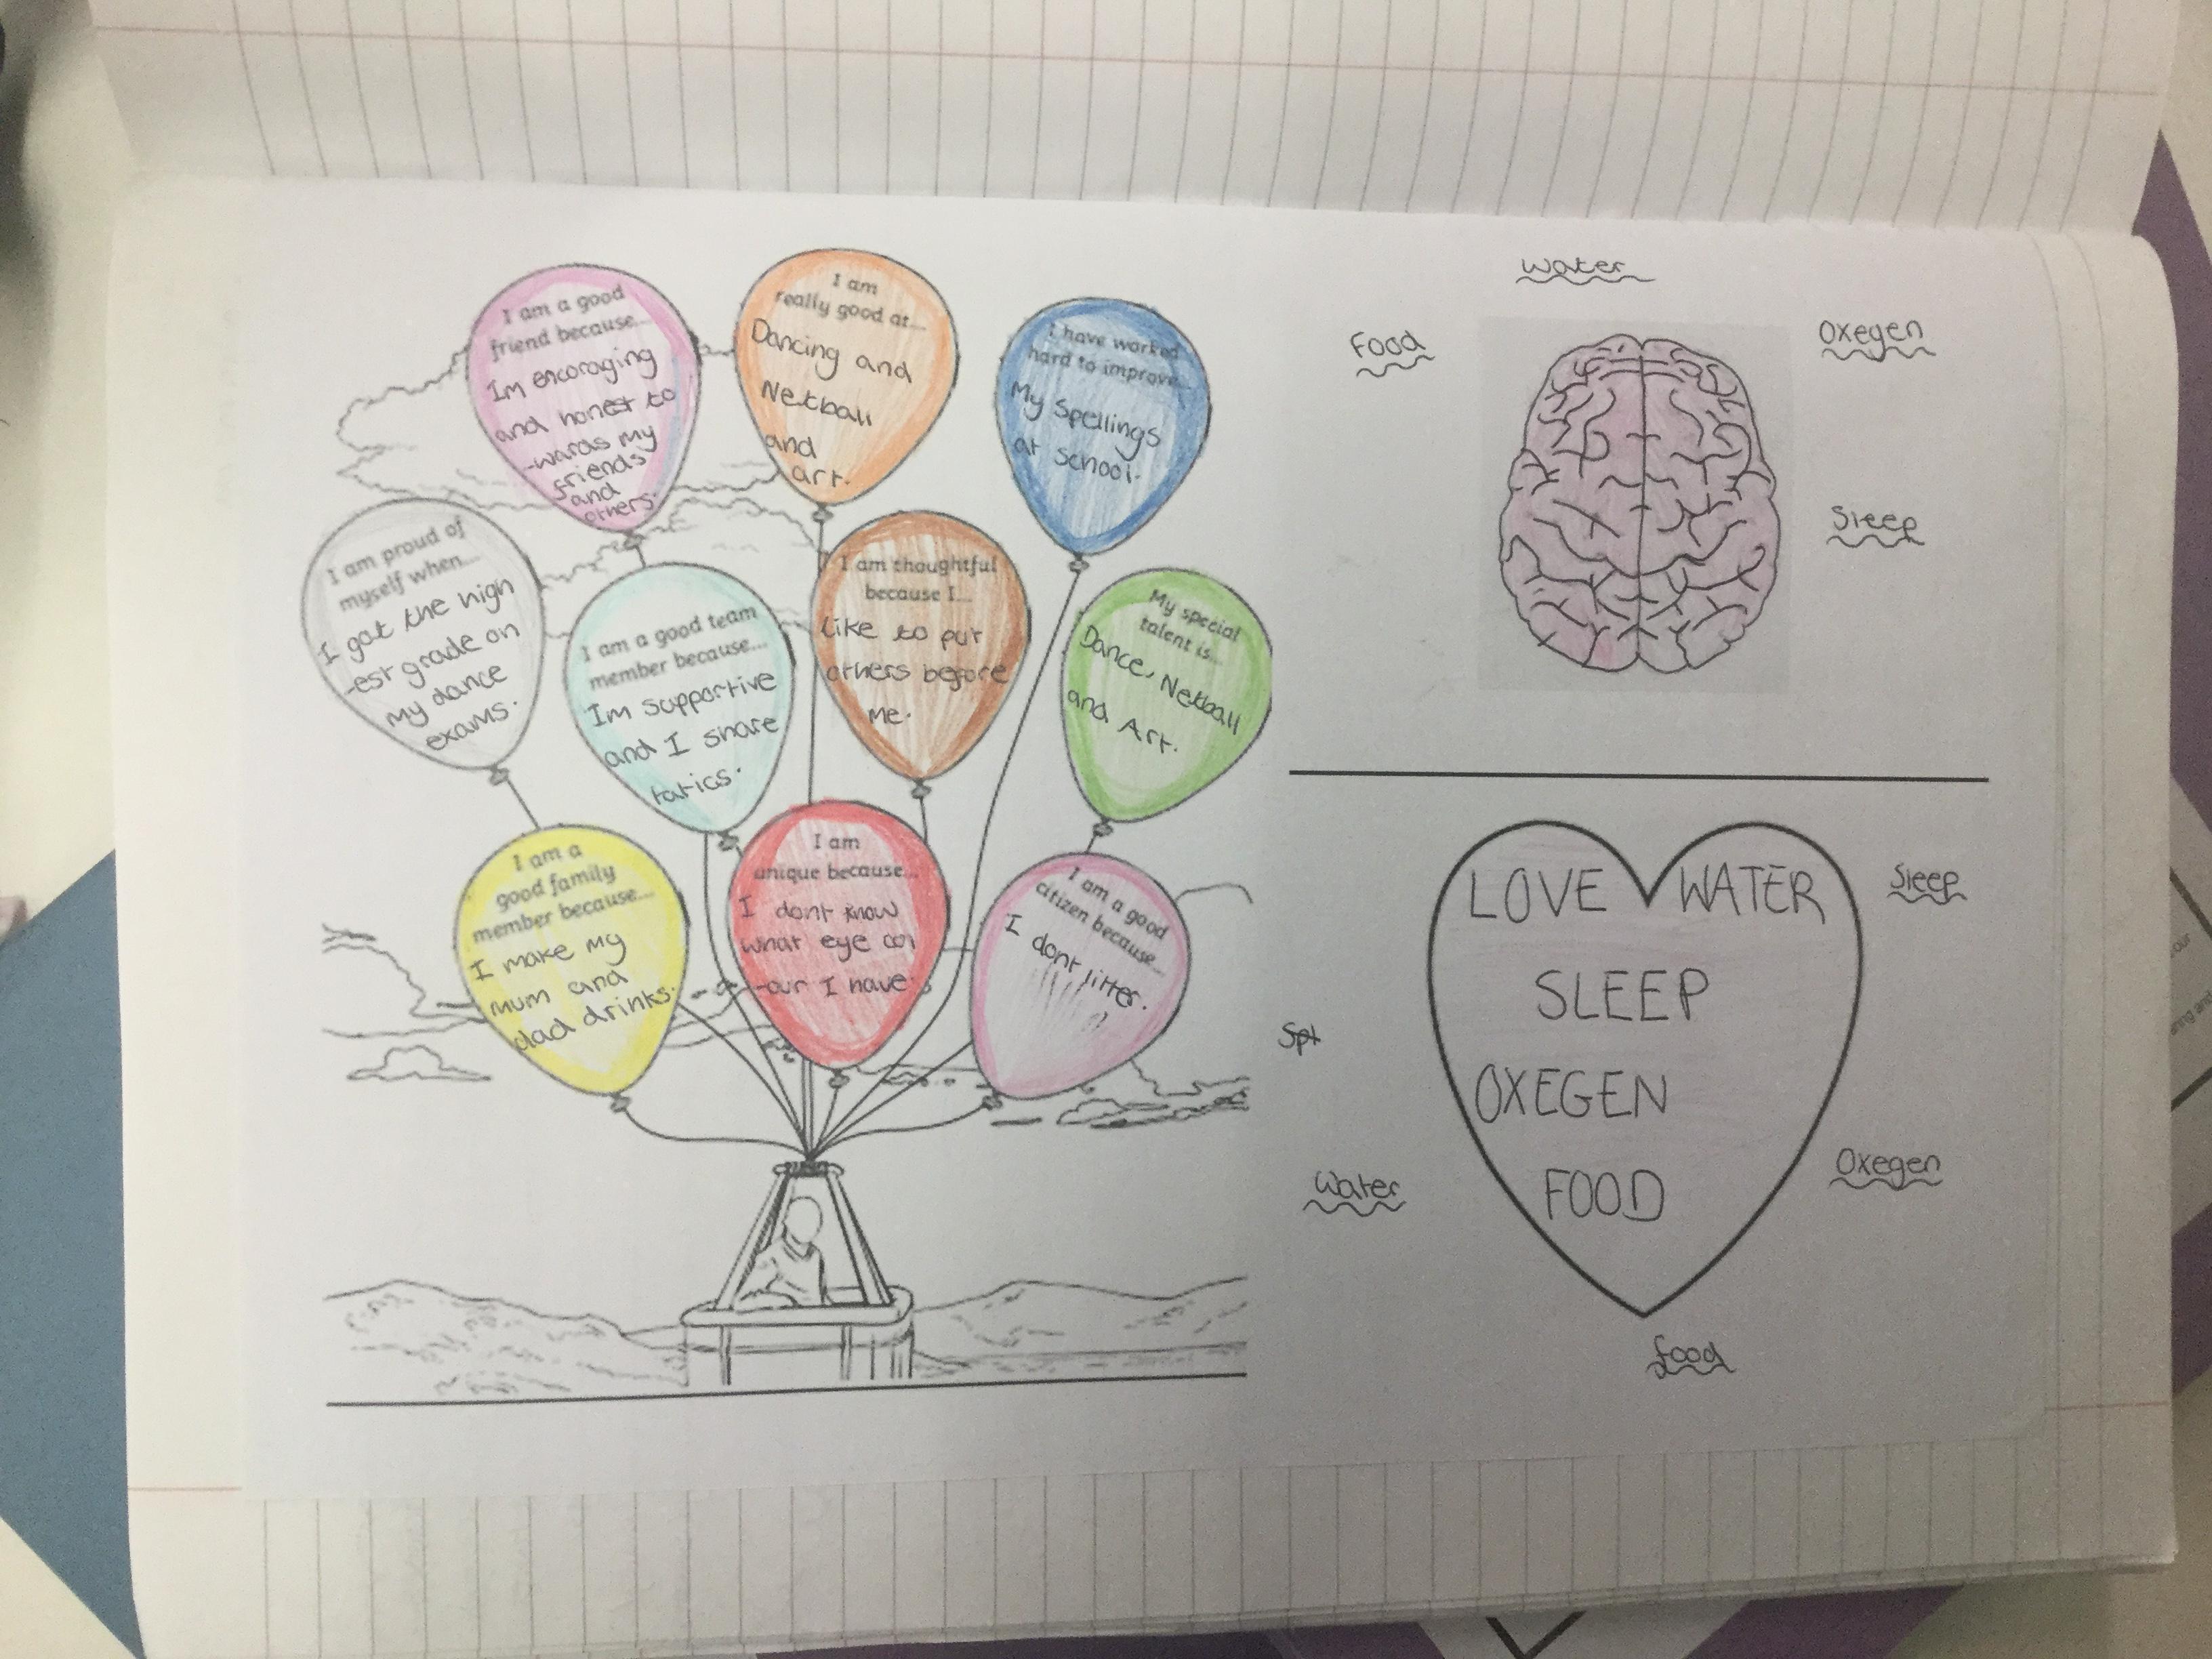 I am a good
friend because...
Im encoraging
and honest to
-wards my
friends
and
others.
I am
really good at...
Dancing and
Netball
and
art.
I have worked
hard to improve...
My Spellings
at school.
I am proud of
myself when...
I got the high
-est grade on
my dance
exams.
I am a good team
member because...
Im supportive
and I share
tatics.
I am thoughtful
because I...
like to put
others before
me.
My special
talent is...
Dance, Netball
and Art.
I am a
good family
member because...
I make my
mum and
dad drinks.
I am
unique because...
I dont know
what eye col
-our I have.
I am a good
citizen because...
I dont litter.
Water
Food
Oxegen
Sleep
LOVE WATER
SLEEP
OXEGEN
FOOD
Sleep
Spt
Water
Oxegen
food